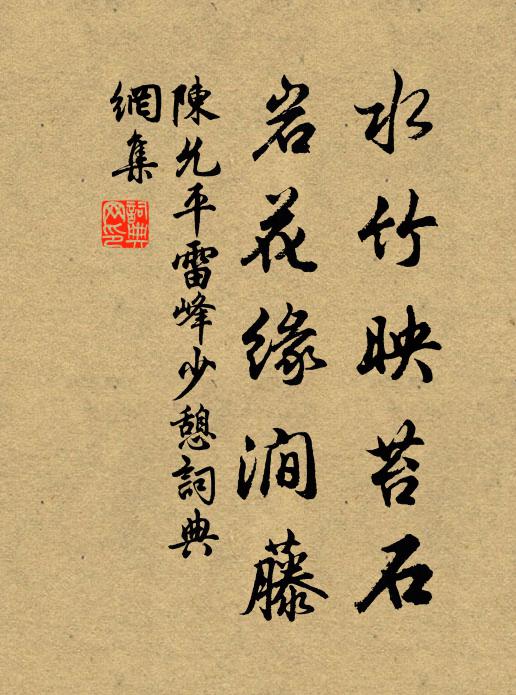 水竹映苔石
岩花缘涧藤
陳允平雷峰少憩詞典
網集
詞典
网印